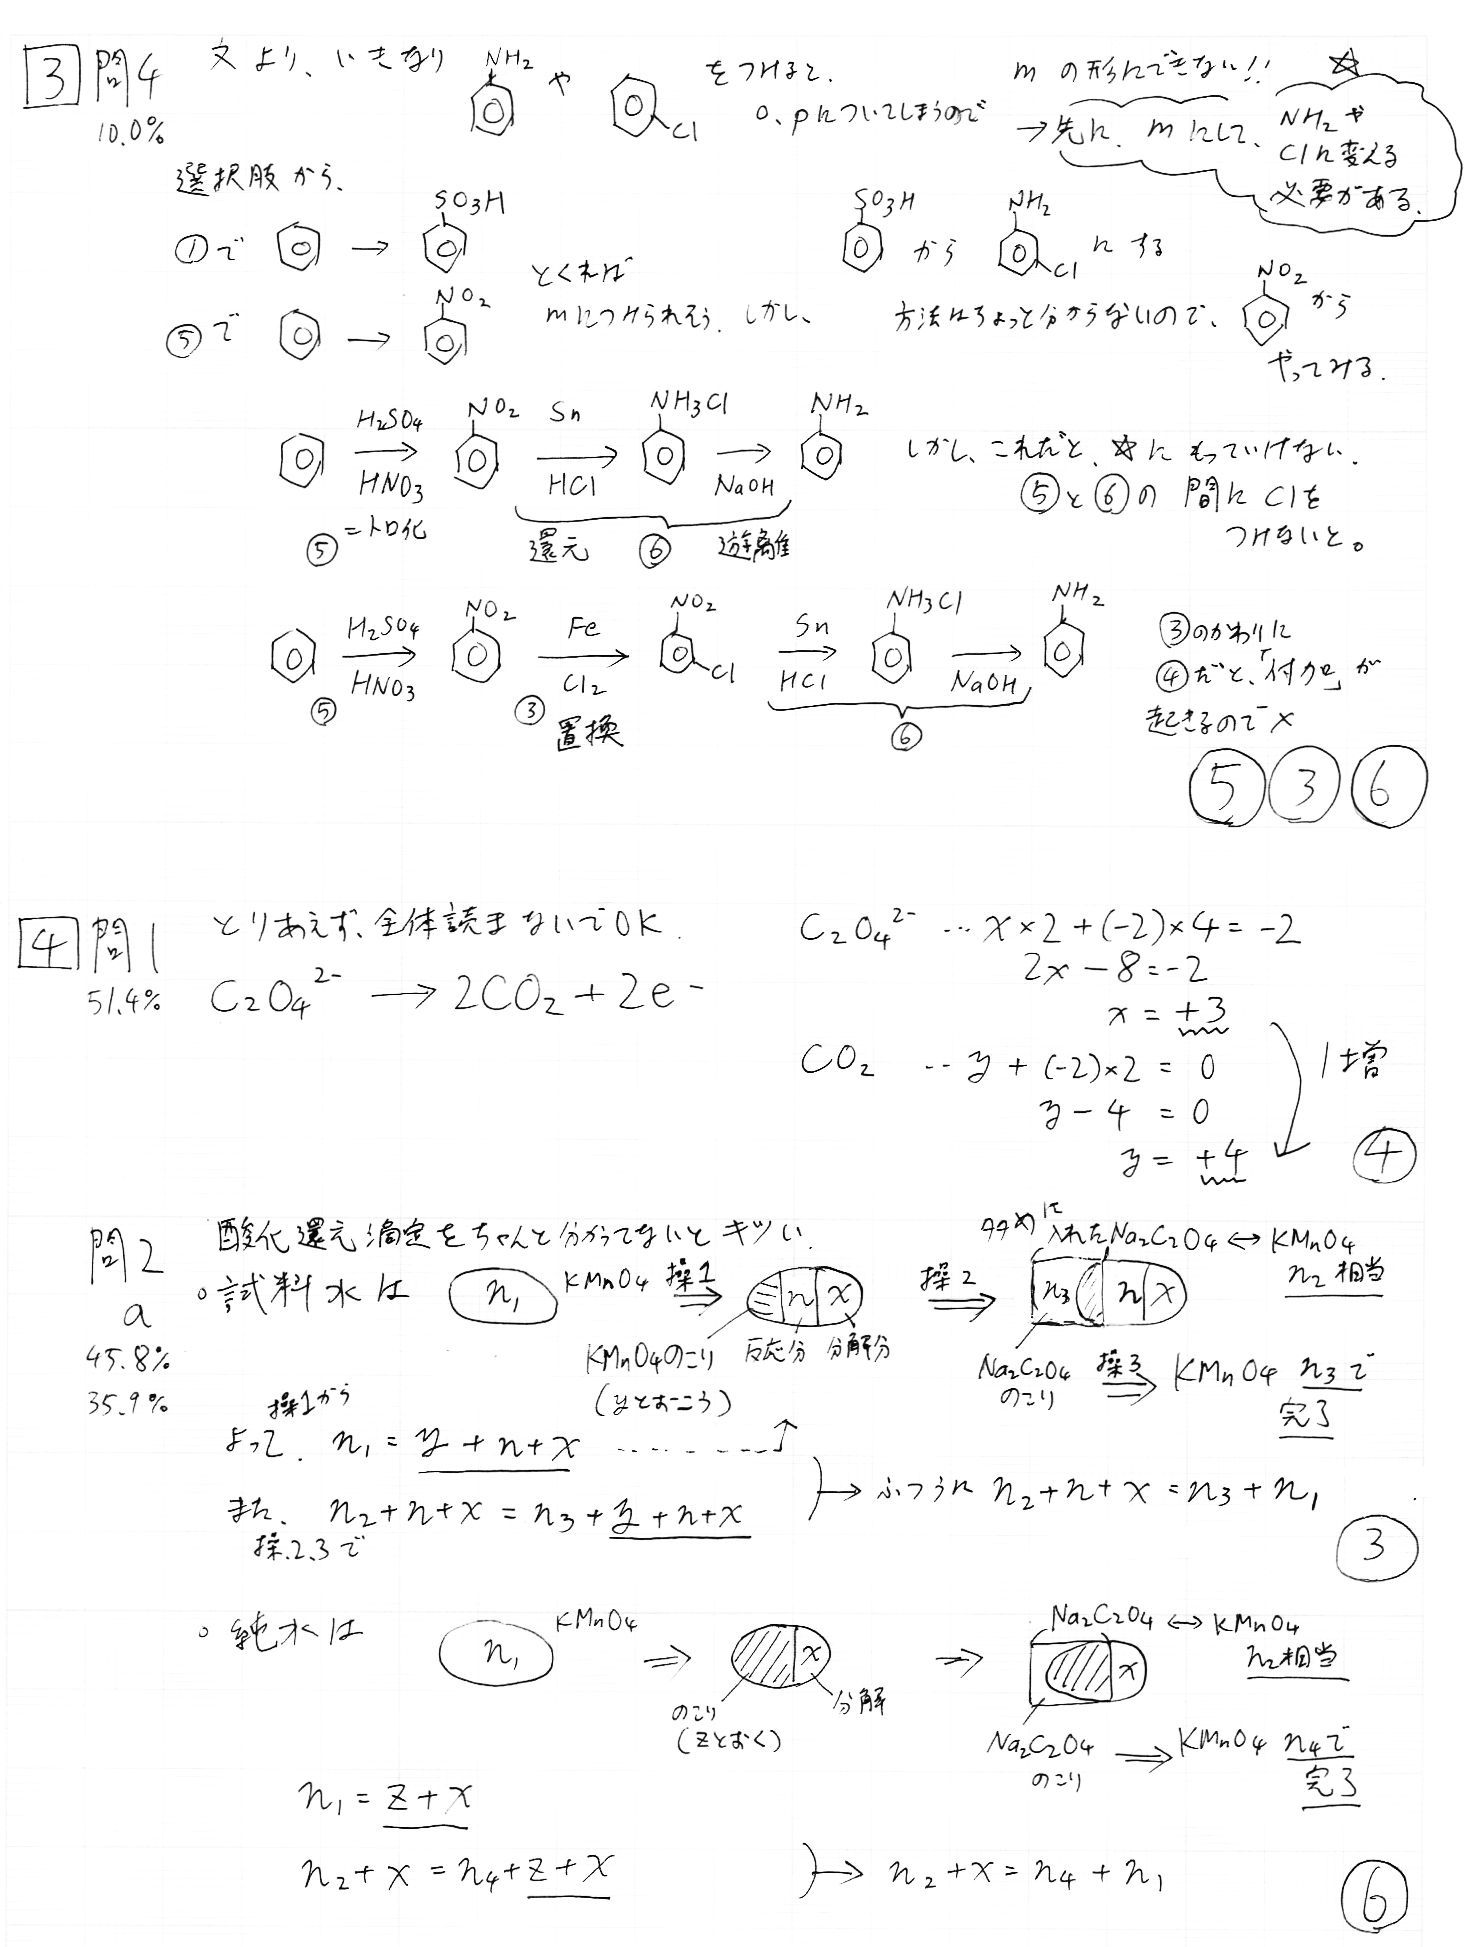 3 問4 文より、いきなり NH2 や Cl をつけると、 mの形にできない!! ☆
10.0% o、pについてしまうので →先に、mにして、NH2や
Clに変える
必要がある。
選択肢から、
①で → SO3H SO3H から NH2 Cl にする
とくれば
mにつけられそう。しかし、 方法はちょっと分からないので、NO2 から
⑤で → NO2
やってみる.
H2SO4 NO2 Sn NH3Cl NH2
しかし、これだと、☆にもっていけない.
HNO3 HCl NaOH ⑤と⑥の間にClを
⑤ニトロ化 還元 ⑥ 遊離 つけないと。
H2SO4 NO2 Fe NO2 Cl Sn NH3Cl NH2 ③のかわりに
HNO3 Cl2 HCl NaOH ④だと、「付加」が
⑤ ③ 置換 ⑥ 起きるので×
⑤ ③ ⑥
4 問1 とりあえず、全体読まないでOK. C2O4 2- … x×2+(-2)×4=-2
51.4% C2O4 2- → 2CO2+2e- 2x-8=-2
x = +3
CO2 … y+(-2)×2 = 0 1増
y-4 = 0
y = +4 ④
問2 酸化還元滴定をちゃんと分かってないとキツい.
a
45.8%
35.9%
◦試料水は n1 KMnO4 操1 ⇒ n x 操2 ⇒ 多めに入れたNa2C2O4 ↔ KMnO4
n2相当
n3 n x
KMnO4のこり 反応分 分解分 Na2C2O4 操3 ⇒ KMnO4 n3で
(yとおこう) のこり 完了
操1から
よって、n1 = y+n+x
また、n2+n+x = n3+y+n+x → ふつうに n2+n+x = n3+n1
操.2.3で ③
◦純水は n1 KMnO4 ⇒ x ⇒ Na2C2O4 ↔ KMnO4
n2相当
x
のこり 分解
(zとおく) Na2C2O4 ⇒ KMnO4 n4で
のこり 完了
n1 = z+x
n2+x = n4+z+x → n2+x = n4+n1
⑥